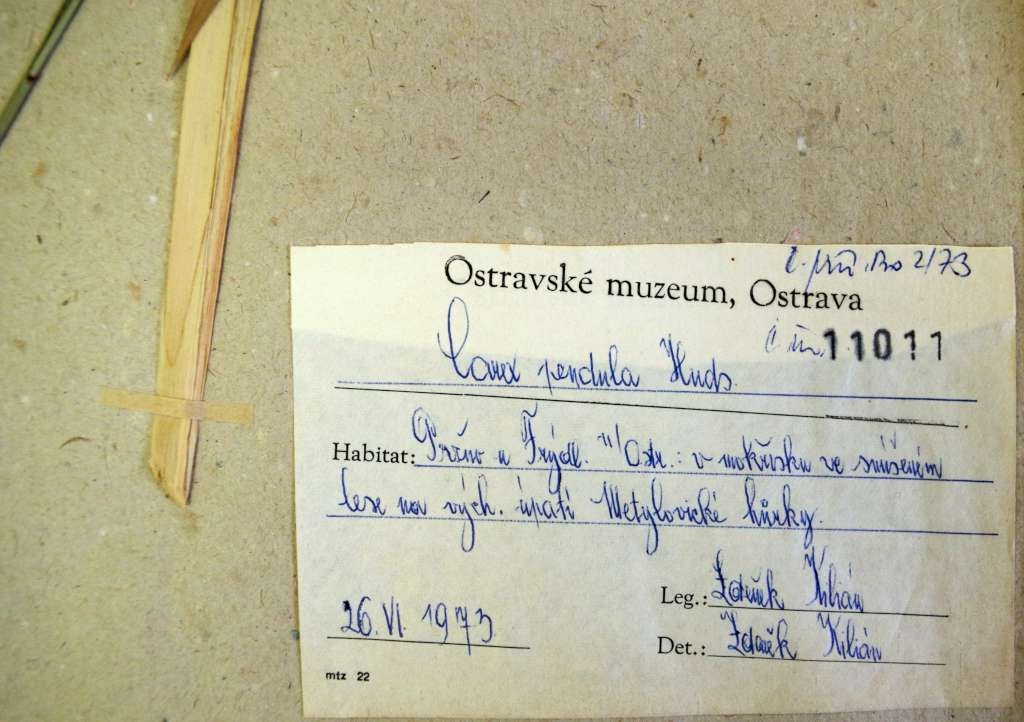 č. přír. Bo 2/73
Ostravské muzeum, Ostrava
č. inv. 11011
Carex pendula Huds.
Habitat: Pržno u Frýdl. n/Ostr.: v mokřisku ve smíšeném
lese na vých. úpatí Metylovické hůrky.
26. VI. 1973
Leg.: Zdeněk Kilián
Det.: Zdeněk Kilián
mtz 22